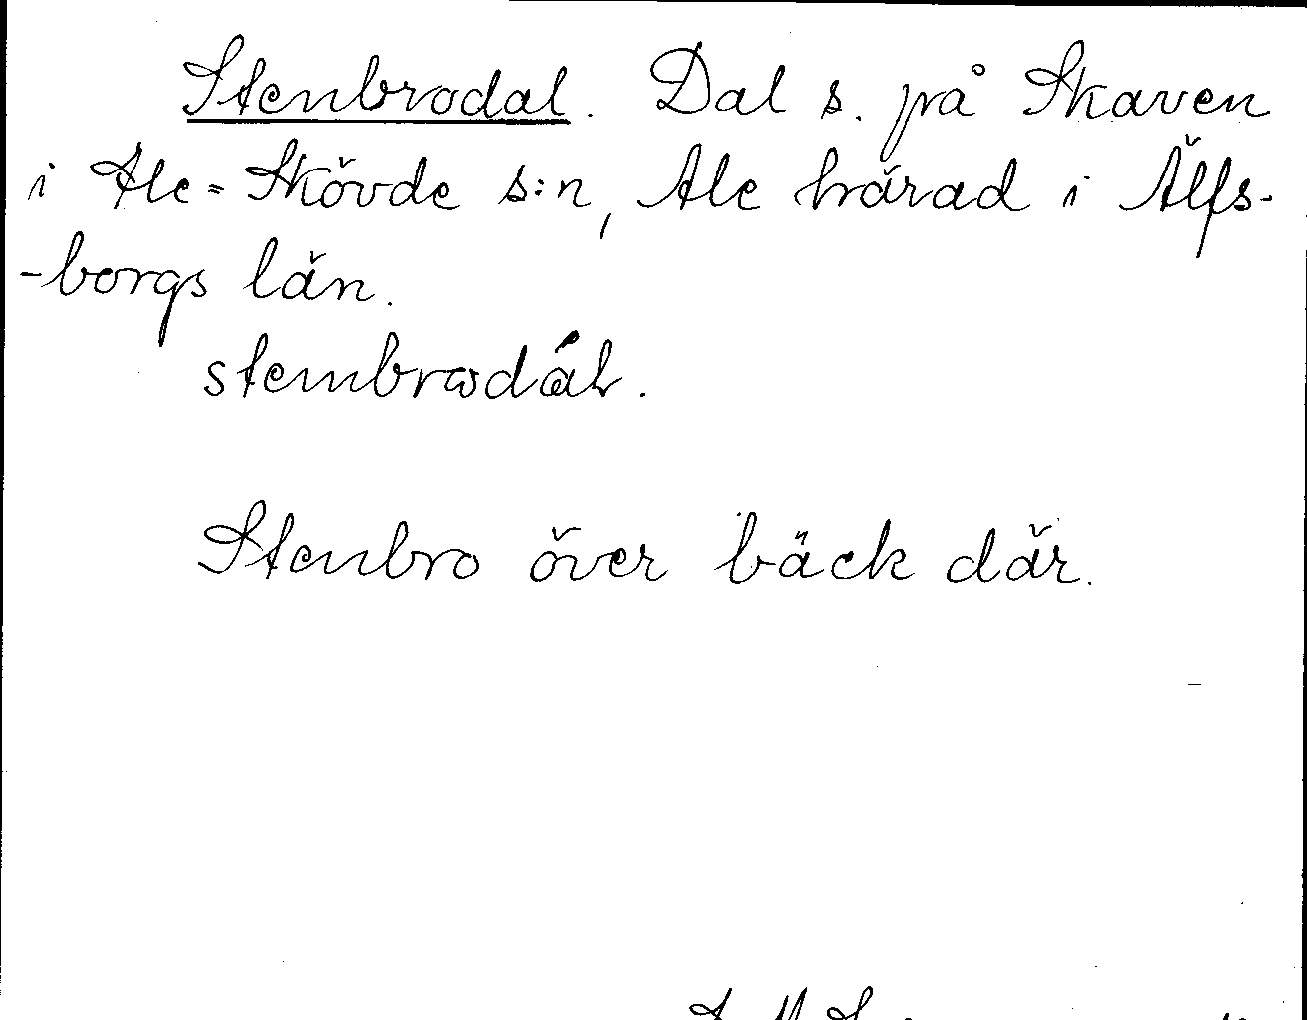 Stenbrodal. Dal s. på Skaven
i Ale=Skövde s:n, Ale härad i Älfs-
-borgs län.
Stenbro över bäck där.